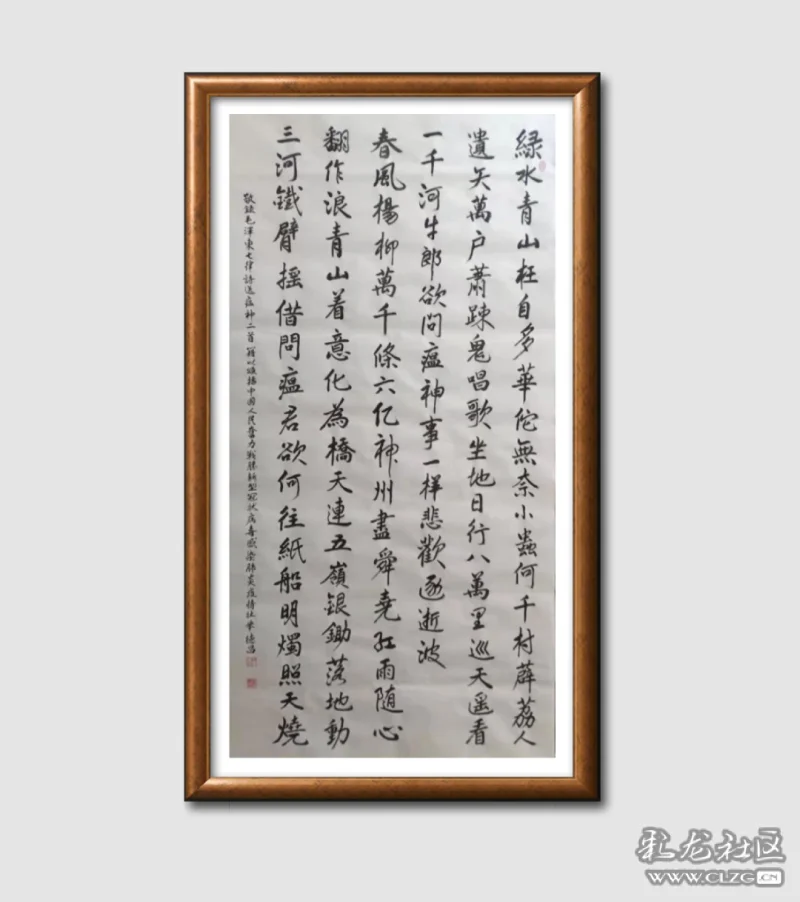 綠水青山枉自多華佗無奈小蟲何千村薜荔人
遺矢萬戶蕭疎鬼唱歌坐地日行八萬里巡天遥看
一千河牛郎欲问瘟神事一样悲歡逐逝波
春風楊柳萬千條六亿神州盡舜堯红雨随心
翻作浪青山着意化為橋天連五嶺銀鋤落地動
三河鐵臂摇借問瘟君欲何往紙船明燭照天燒
敬錄毛澤東七律詩送瘟神二首籍以中國人民奮力戰勝新型冠狀病毒感染肺炎疫情德昌
彩龙社区
WWW.CLZG.CN